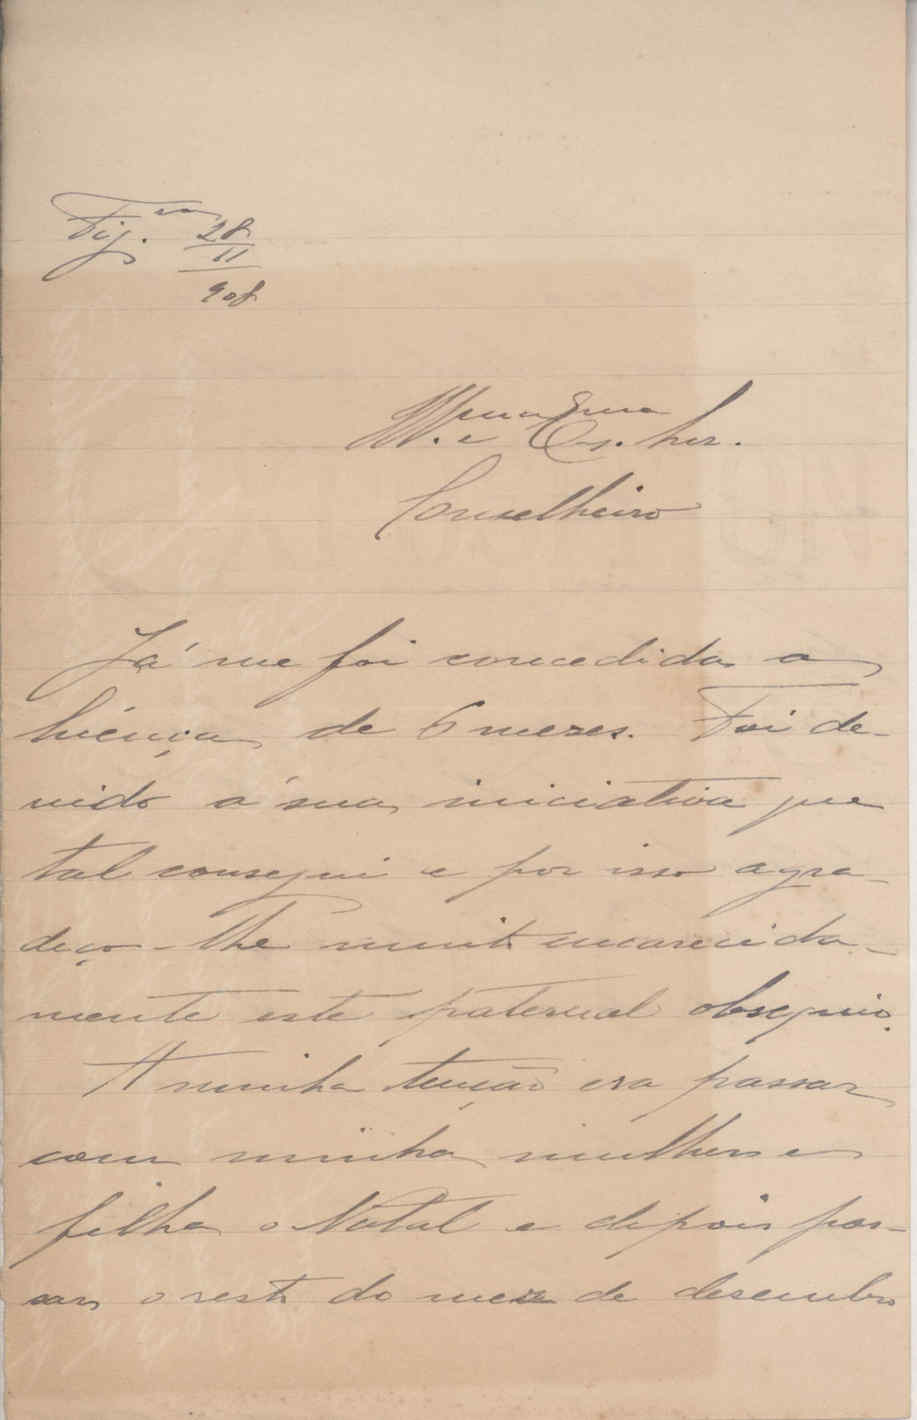 Fig.ra 28/11/908
Conselheiro
Já me foi concedida a
licença de 6 mezes. Foi de-
vido á sua iniciativa que
tal consegui e por isso agra-
deço-lhe muito encarecida-
mente este paternal obsequio.
A minha tenção era passar
com minha mulher e
filha o Natal e depois pas-
sar o resto do mez de desembro